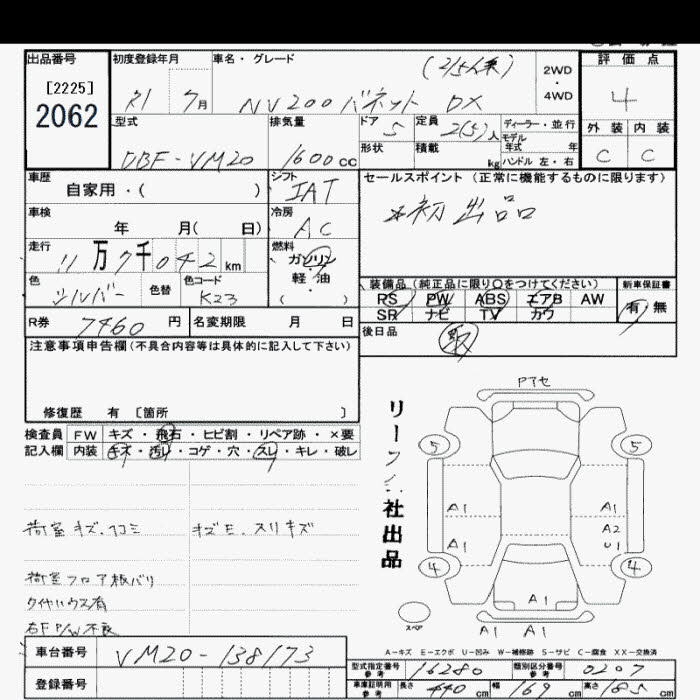 出品番号 初度登録年月 車名・グレード 評価点
[2225]
2062
R1 7月 NV200バネット DX (2/5人乗) 2WD・4WD 4
型式 排気量 ドア 定員 ディーラー・並行 外装 内装
モデル年式 年
DBF-VM20 1600cc 5 2(5)人 C C
形状 積載 kg ハンドル 左・右
車歴 シフト セールスポイント (正常に機能するものに限ります)
自家用・( ) IAT
*初出品
車検 冷房
年 月( 日) AC
走行 燃料
11万7千042km ガソリン
軽・油
( )
色 色替 色コード
シルバー K23
装備品(純正品に限り○をつけてください) 新車保証書
PS PW ABS エアB AW
SR ナビ TV カワ
有・無
R券 7460円 名変期限 月 日
後日品 取
注意事項申告欄(不具合内容等は具体的に記入して下さい)
修復歴 有 〔箇所 〕
検査員 FW キズ・飛石・ヒビ割・リペア跡・×要
記入欄 内装 キズ・汚レ・コゲ・穴・スレ・キレ・破レ
荷室キズ、凹コミ キズE、スリキズ
荷室フロア板バリ
タイヤハウス有
右F P/W不良
リー
社出品
Pアセ
5 5
A1 A1
A2
A1 U1
4 4
A1
スペア
A1 A1
A-キズ E-エクボ U-凹み W-補修跡 S-サビ C-腐食 XX-交換済
車台番号 VM20-138173
登録番号
型式指定番号 参考 16280 類別区分番号 参考 0207
車庫証明用 参考 長さ 440cm 幅 169cm 高さ 185cm